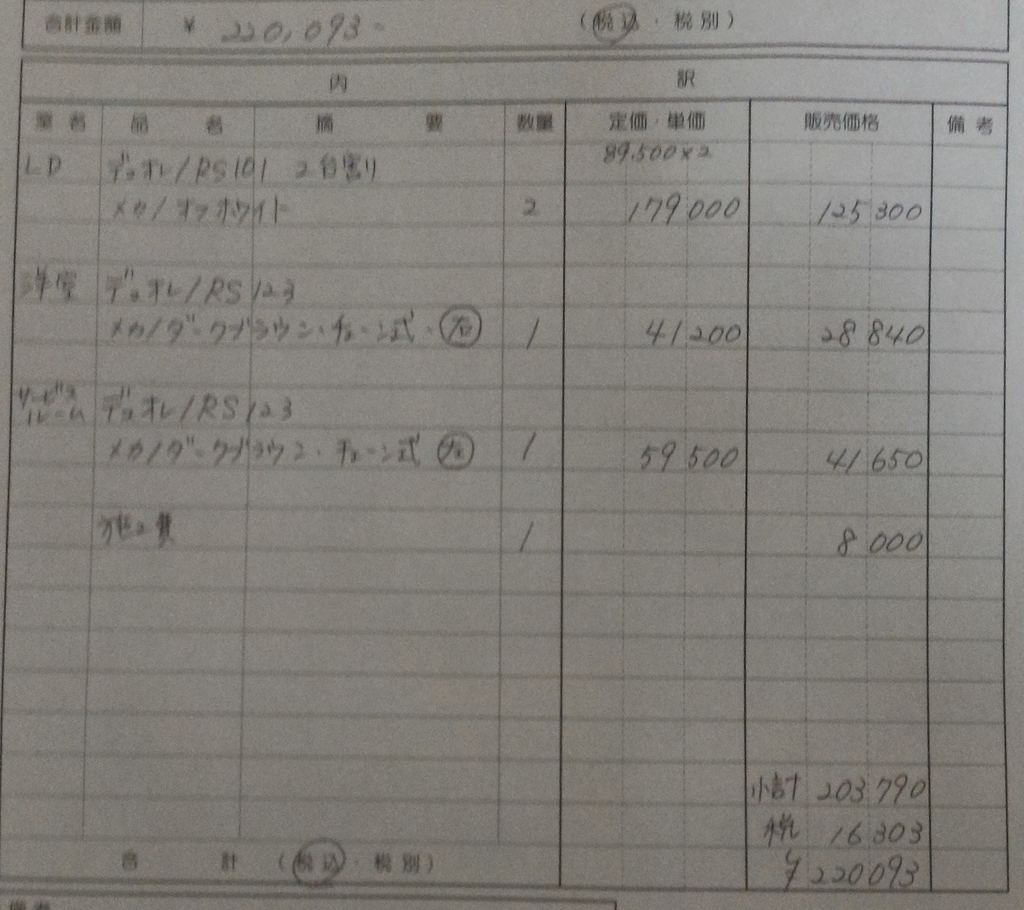 合計金額 ¥ 220,093- (税込・税別)
内 訳
品 名 摘 要 数量 定価・単価 販売価格 備考
LD デュオレ/RS101 2台割り 89,500×2
メカ/オフホワイト 2 179 000 125 300
洋室 デュオレ/RS123
メカ/ダークブラウン・チェーン式・右 1 41 200 28 840
サービスルーム デュオレ/RS123
メカ/ダークブラウン・チェーン式 1 59 500 41 650
施工費 1 8 000
小計 203 790
税 16 303
合 計 (税込・税別) ¥220 093
備考